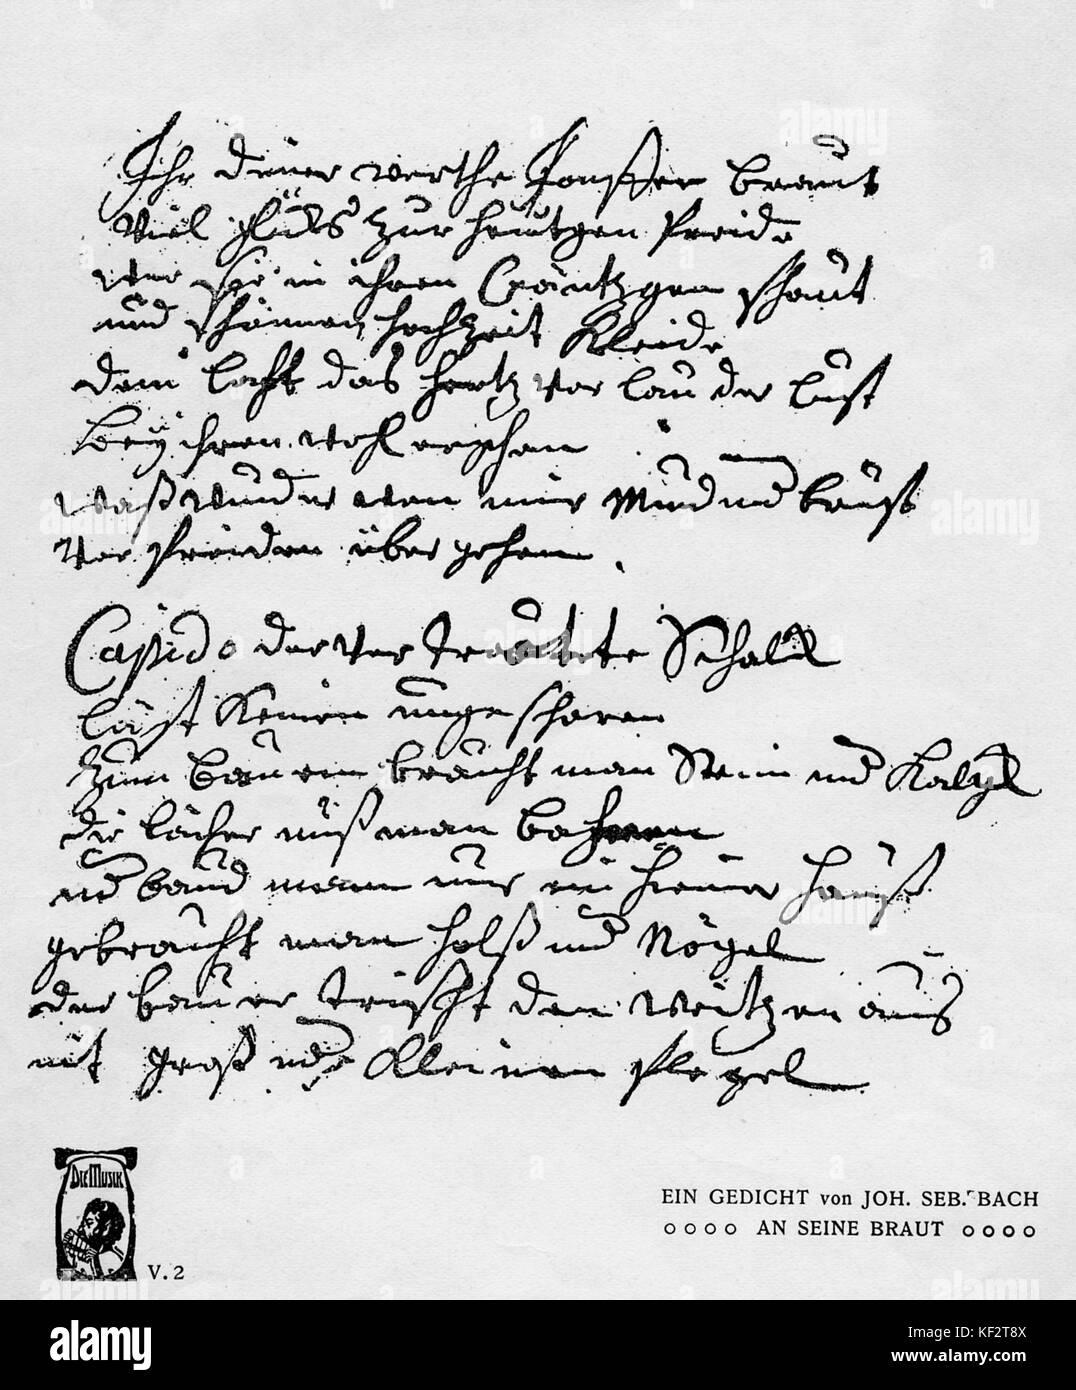 Ihr diener werthe Jonffer braut
Viel glücks zur heutgen Freide
wer sie in ihren Cräntzgen schaut
und schönnen hochzeit Kleide
dem lacht das hertz vor lauder Lust
bey ihren wohl ergehen
waß wunder wen mir Mund und brust
vor freiden übergehen.
Cupido der vertrautte Schalck
läst Keinen ungeschoren
zum bauen braucht man Stein und Kalck
die löcher muß man bohren
und baud mann nur ein hiener hauß
gebraucht man holß und Nägel
der bauer trischt den weitzen aus
mit groß und Kleinen flegel
DIE MUSIK
V. 2
EIN GEDICHT von JOH. SEB. BACH
AN SEINE BRAUT
alamy
Image ID: KF2T8X
www.alamy.com